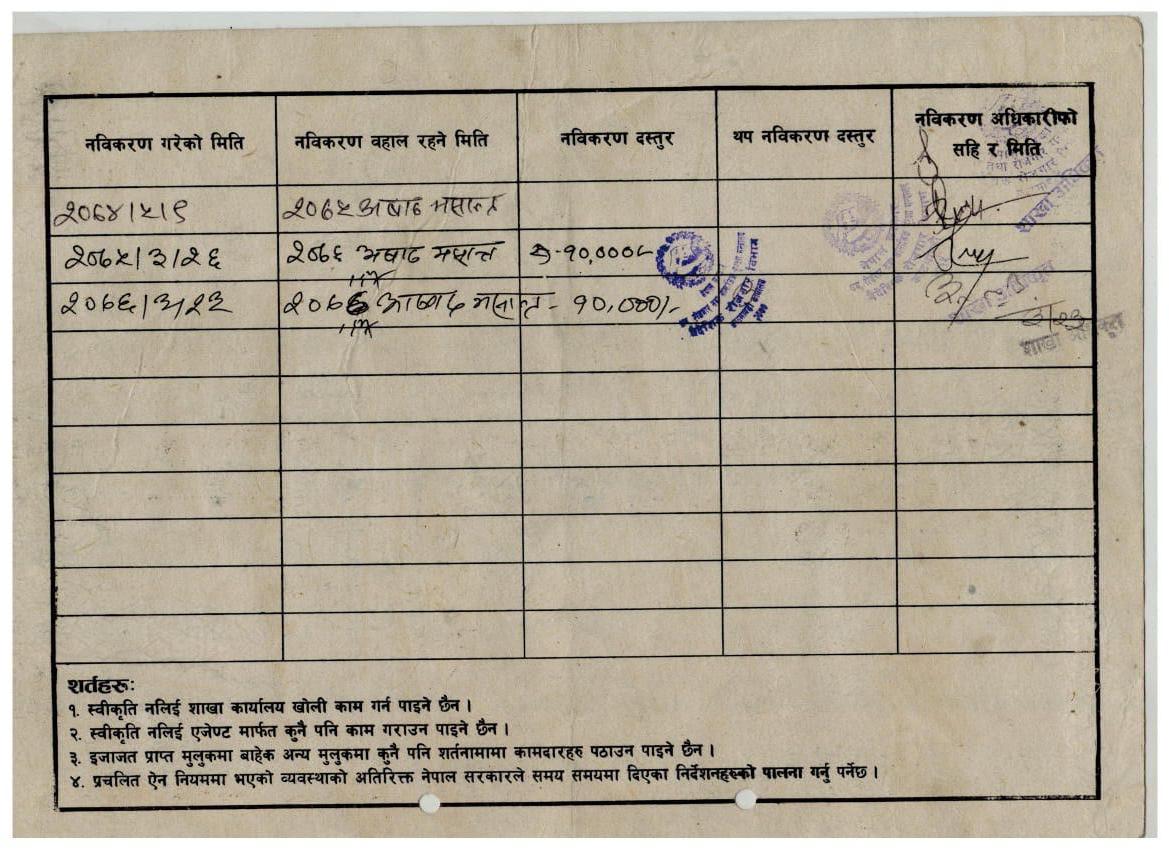 नविकरण गरेको मिति नविकरण वहाल रहने मिति नविकरण दस्तुर थप नविकरण दस्तुर नविकरण अधिकारीको
सहि र मिति
२०६४।५।९ २०६५ अषाढ मसान्त
२०६५।३।२६ २०६६ अषाढ मसान्त रु-१०,०००/-
२०६६।३।२३ आषाढ मसान्त - १०,०००/-
३।२३
वैदेशिक रोजगार विभाग
शाखा अधिकृत
शाखा अधिकृत
शर्तहरुः
१. स्वीकृति नलिई शाखा कार्यालय खोली काम गर्न पाइने छैन।
२. स्वीकृति नलिई एजेण्ट मार्फत कुनै पनि काम गराउन पाइने छैन।
३. इजाजत प्राप्त मुलुकमा बाहेक अन्य मुलुकमा कुनै पनि शर्तनामामा कामदारहरु पठाउन पाइने छैन।
४. प्रचलित ऐन नियममा भएको व्यवस्थाको अतिरिक्त नेपाल सरकारले समय समयमा दिएका निर्देशनहरुको पालना गर्नु पर्नेछ।